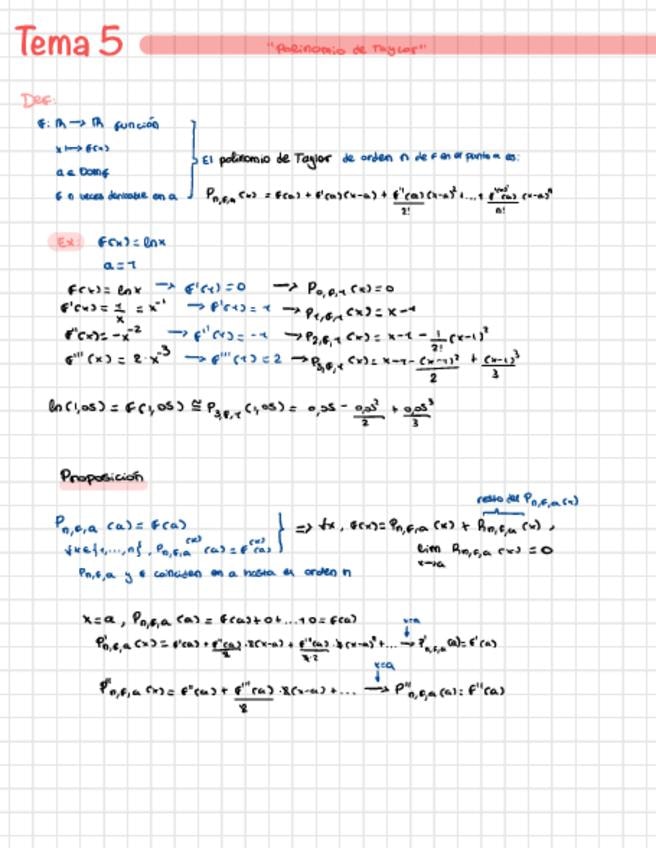 Tema 5
"Polinomio de Taylor"
Def:
f: ℝ → ℝ función
x ↦ f(x)
a ∈ Dom f
f n veces derivable en a
El polinomio de Taylor de orden n de f en el punto a es:
P_{n,f,a}(x) = f(a) + f'(a)(x-a) + f''(a)/2! (x-a)² + ... + f^{(n)}(a)/n! (x-a)ⁿ
Ex: f(x) = lnx
a = 1
f(x) = lnx → f'(1) = 0 → P_{0,f,1}(x) = 0
f'(x) = 1/x = x⁻¹ → f'(1) = 1 → P_{1,f,1}(x) = x-1
f''(x) = -x⁻² → f''(1) = -1 → P_{2,f,1}(x) = x-1 - 1/2! (x-1)²
f'''(x) = 2·x⁻³ → f'''(1) = 2 → P_{3,f,1}(x) = x-1 - (x-1)²/2 + (x-1)³/3
ln(1,05) = f(1,05) ≅ P_{3,f,1}(1,05) = 0,05 - 0,05²/2 + 0,05³/3
Proposición
resto del P_{n,f,a}(x)
P_{n,f,a}(a) = f(a)
∀k∈{1,...,n}, P_{n,f,a}^{(k)}(a) = f^{(k)}(a)
⇒ ∀x, f(x) = P_{n,f,a}(x) + R_{n,f,a}(x),
lim_{x→a} R_{n,f,a}(x) = 0
P_{n,f,a} y f coinciden en a hasta el orden n
x = a, P_{n,f,a}(a) = f(a) + 0 + ... + 0 = f(a)
x=a
P'_{n,f,a}(x) = f'(a) + f''(a)/2 ·2(x-a) + f'''(a)/3·2 ·3(x-a)² + ... → P'_{n,f,a}(a) = f'(a)
x=a
P''_{n,f,a}(x) = f''(a) + f'''(a)/2 ·2(x-a) + ... → P''_{n,f,a}(a) = f''(a)